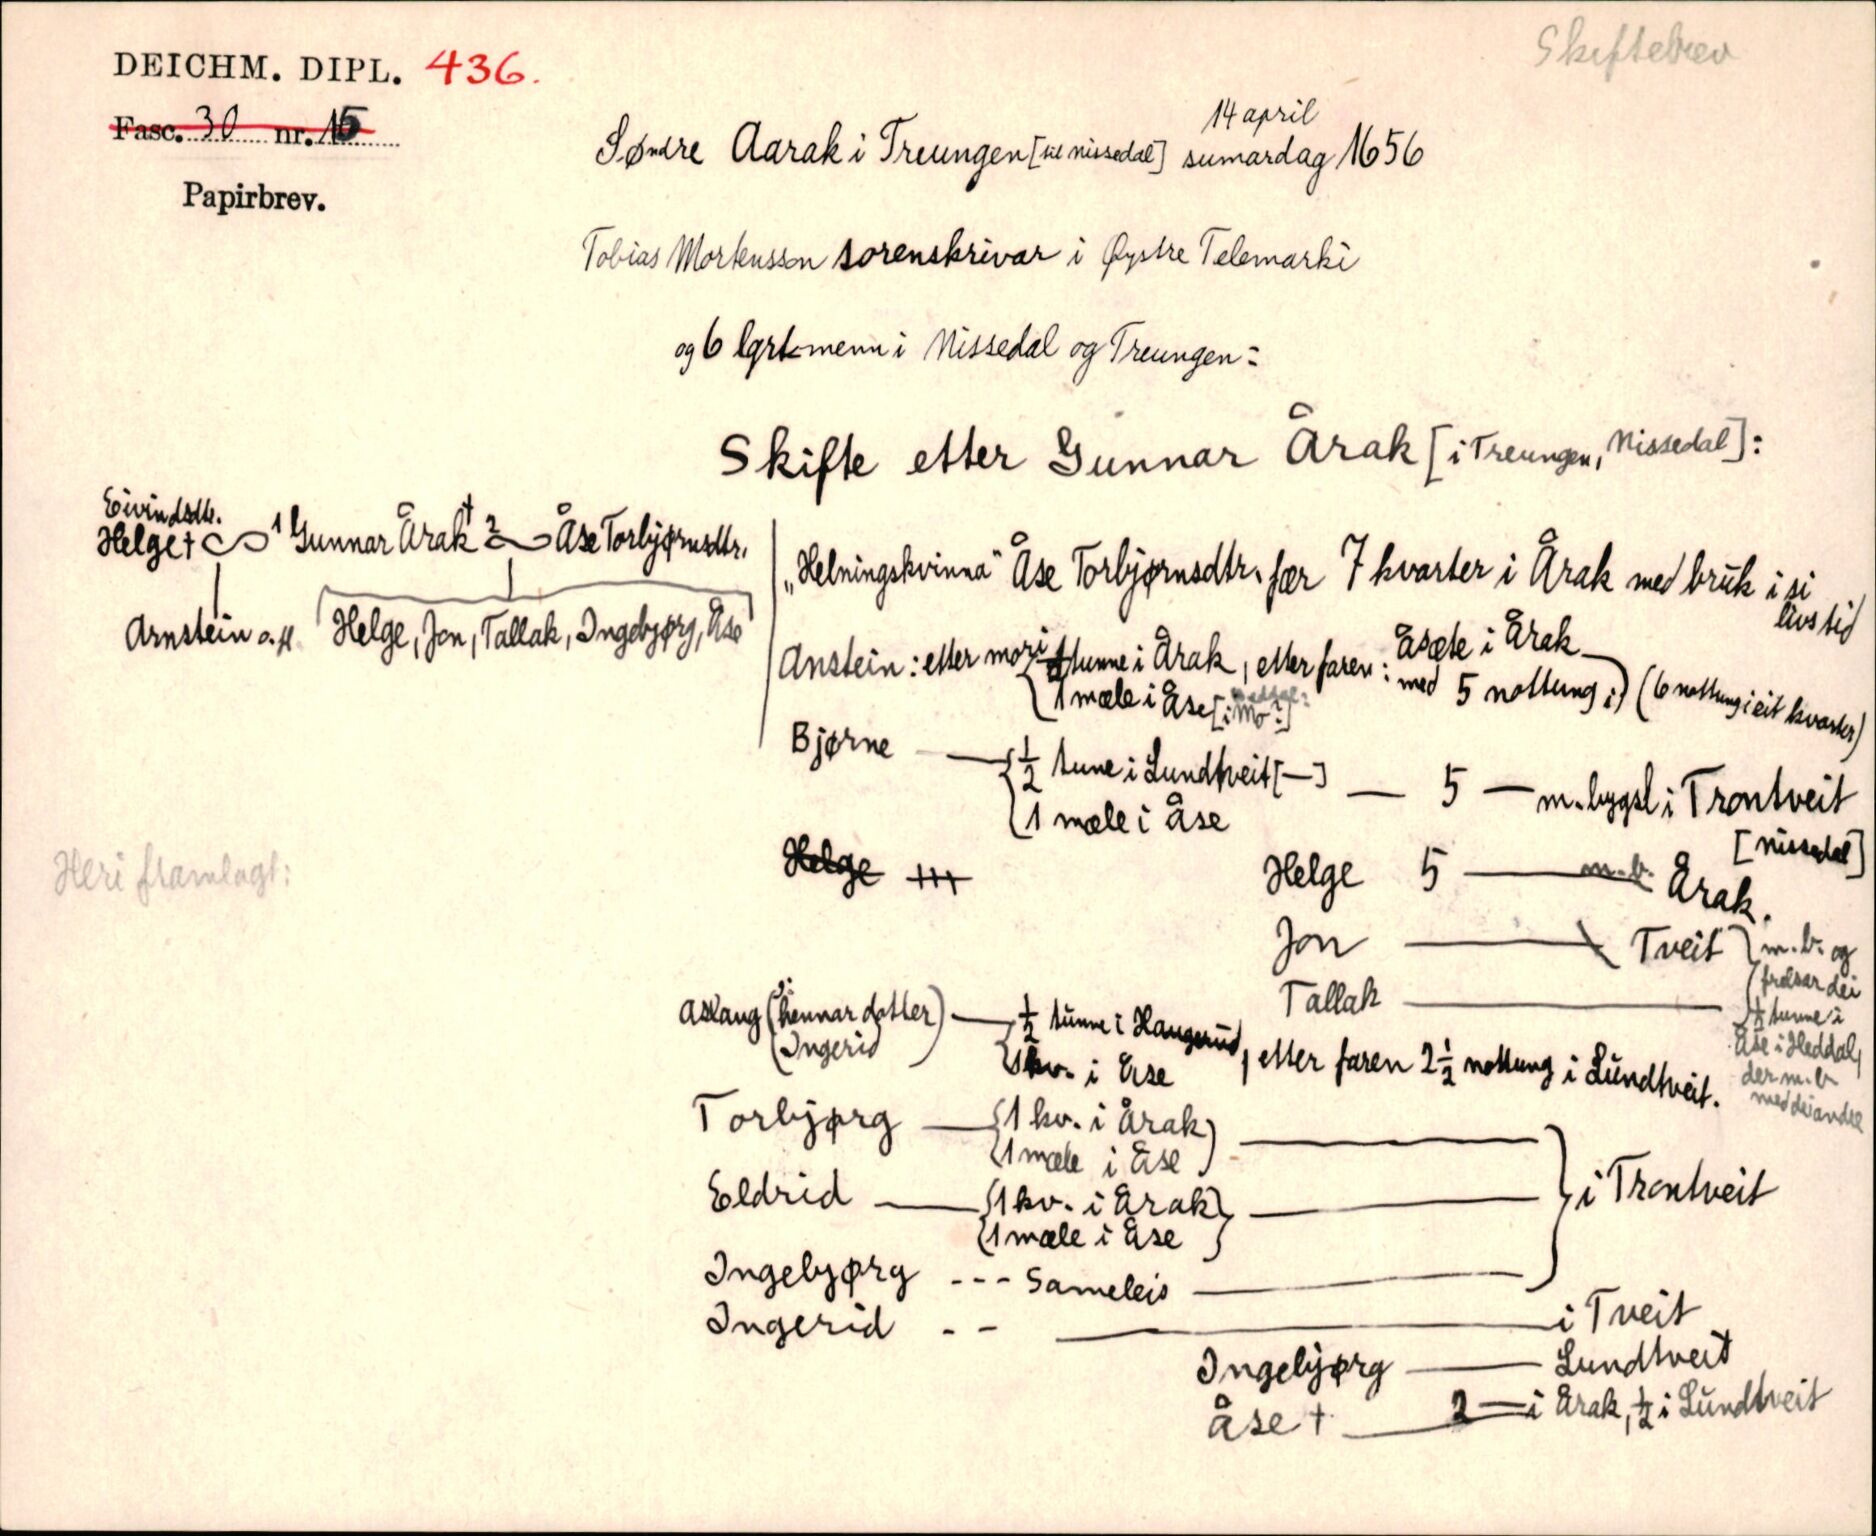 Skiftebrev
DEICHM. DIPL. 436.
Fasc. 30 nr. 15
Papirbrev.
14 april
Søndre Aarak i Treungen [til Nissedal] sumardag 1656
Tobias Mortensson sorenskrivar i Øystre Telemarki
og 6 lgrt menn i Nissedal og Treungen:
Skifte etter Gunnar Årak [i Treungen, Nissedal]:
Eivindsdtr.
Helge † 1 Gunnar Årak † 2 Åse Torbjørnsdtr.
Arnstein o. fl. Helge, Jon, Tallak, Ingebjørg, Åse
„Helningskvinna" Åse Torbjørnsdtr. fær 7 kvarter i Årak med bruk i si
livstid
Anstein: etter mori tunne i Årak, etter faren: Åsæte i Årak
1 mæle i Åse [i Mo?] med 5 nottung i (6 nottung i eit kvarter)
Bjørne — ½ tune i Lundtveit [—] — 5 — m. bygsl i Trontveit
1 mæle i Åse [Nissedal]
Helge Helge 5 — m.b. Årak.
Jon — Tveit m.b. og
Tallak — frelsar dei
½ tunne i
Åse i Heddal,
der m.b.
med dei andre
Aslaug (hennar dotter) — ½ tunne i Haugerud, etter faren 2½ nottung i Lundtveit.
Ingerid 1 kv. i Åse
Torbjørg — 1 kv. i Årak —
1 mæle i Åse
Eldrid — 1 kv. i Årak — i Trontveit
1 mæle i Åse
Ingebjørg --- Sameleis —
Ingerid -- — i Tveit
Ingebjørg — Lundtveit
Åse † — 2 — i Årak, ½ i Lundtveit
Heri framlagt: